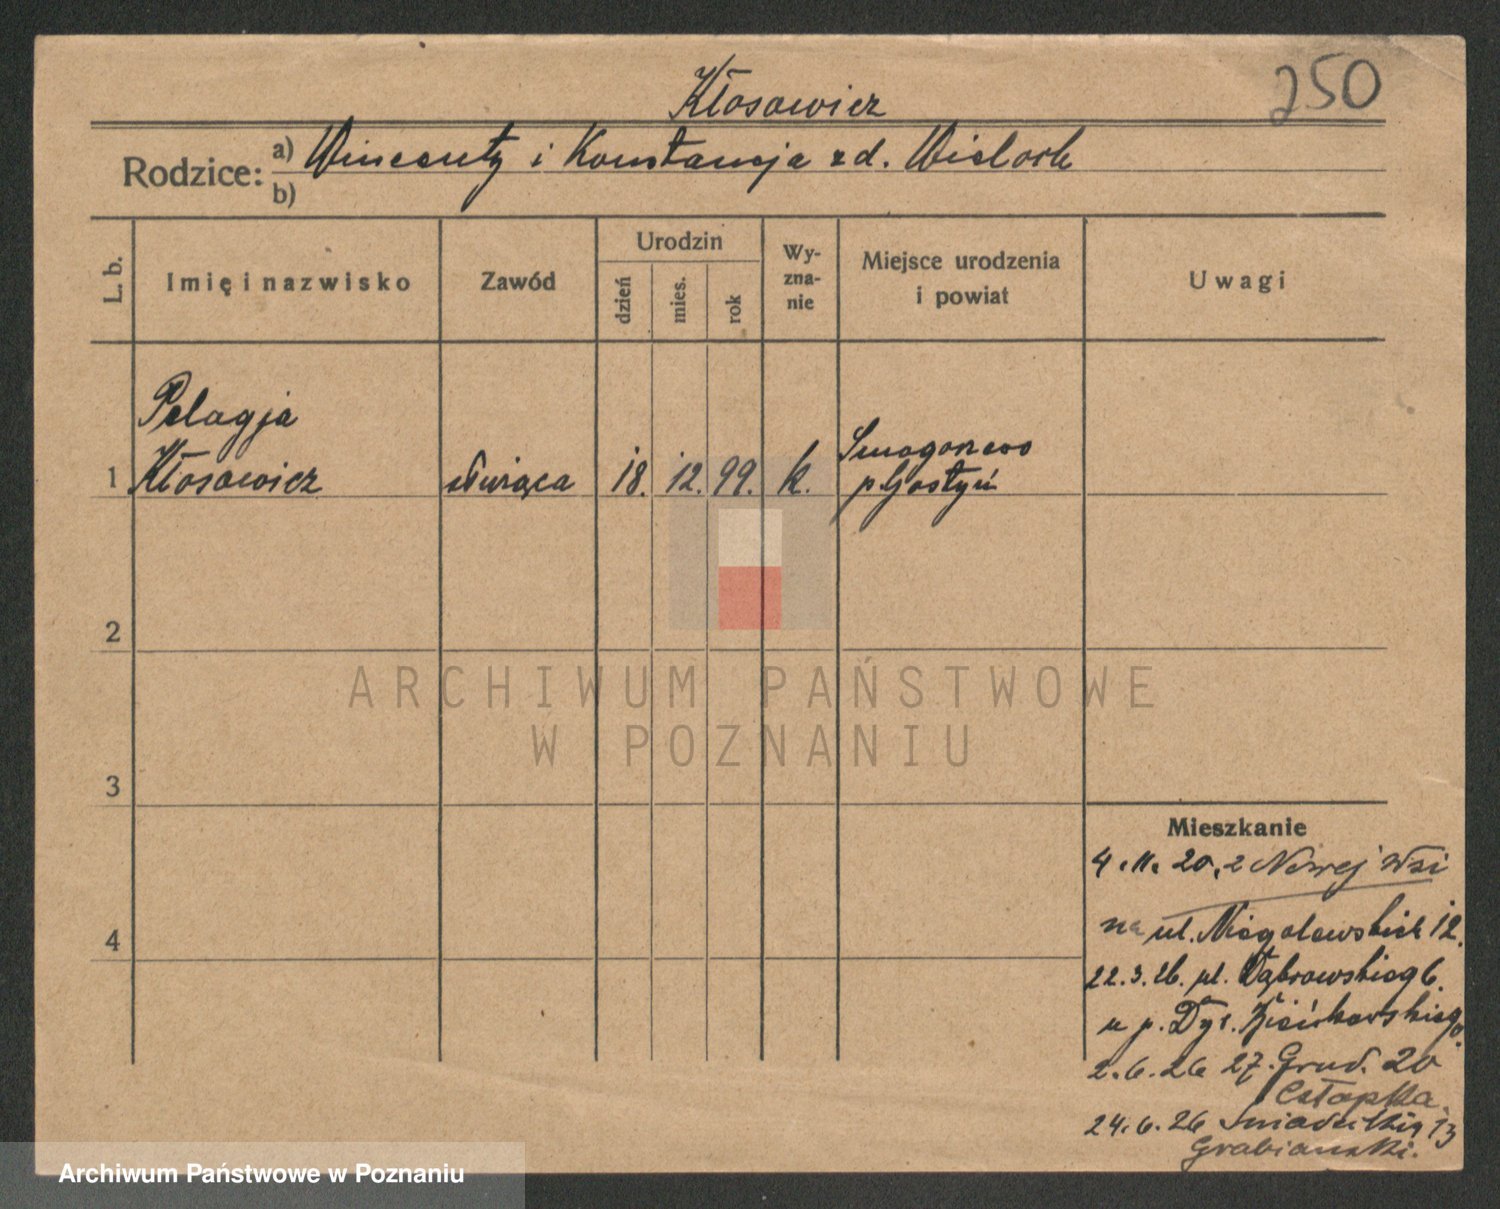 Kłosowicz
250
Rodzice: a) Wincenty i Konstancja zd. Wielock
b)
L. b.
Imię i nazwisko
Zawód
Urodzin
dzień
mies.
rok
Wy-
zna-
nie
Miejsce urodzenia
i powiat
Uwagi
Pelagja
1 Kłosowicz
służąca
18. 12. 99.
k.
Smogorzewo
p Gostyń
2
3
4
Mieszkanie
4. 11. 20. z Nowej Wsi
na ul. Niegolewskich 12.
22. 3. 26. pl. Dąbrowskieg 6.
u p. Dyr.
2. 6. 26 27. Grud. 20
24. 6. 26 Śniadeckich 13
Grabianski.
ARCHIWUM PAŃSTWOWE
W POZNANIU
Archiwum Państwowe w Poznaniu